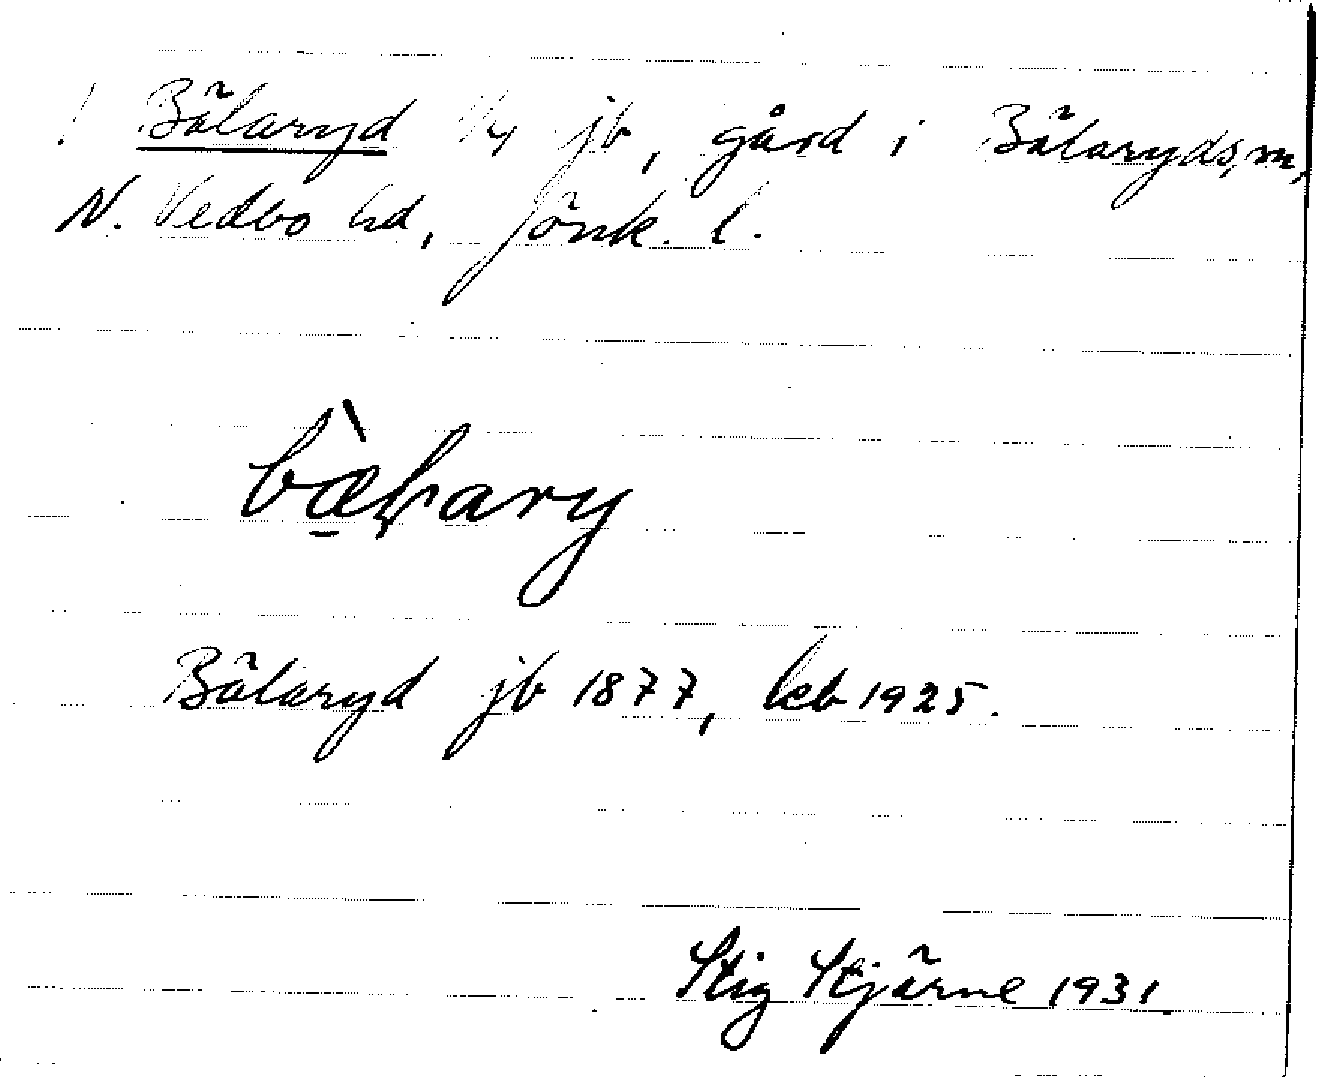 ! Bälaryd 1/4 jb, gård i Bälaryds sn,
N. Vedbo hd, Jönk. l.
Bälaryd jb 1877, leb 1925.
Stig Stjärne 1931